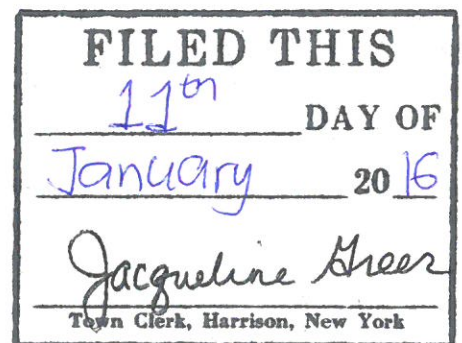 FILED THIS
11th DAY OF
January 2016
Jacqueline Greer
Town Clerk, Harrison, New York